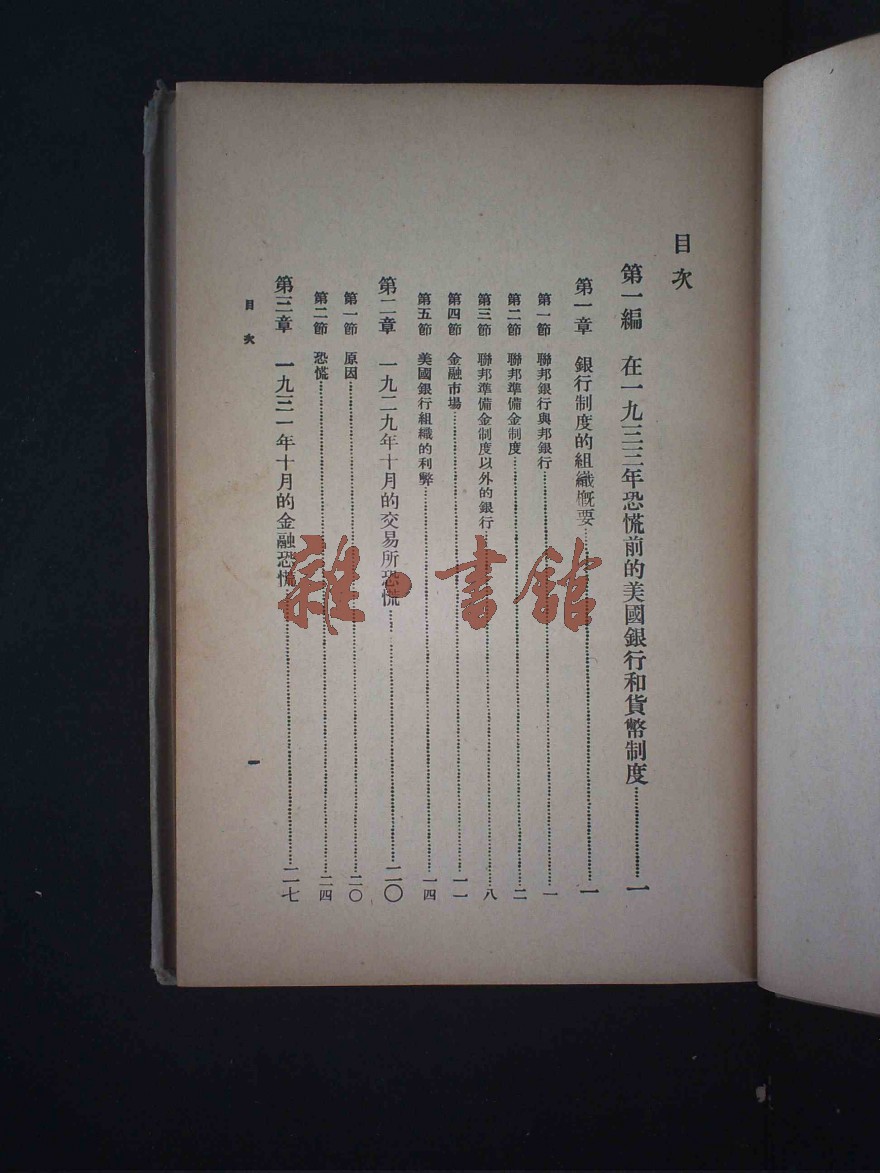 目次
第一編 在一九三三年恐慌前的美國銀行和貨幣制度……一
第一章 銀行制度的組織概要……一
第一節 聯邦銀行與邦銀行……一
第二節 聯邦準備金制度……二
第三節 聯邦準備金制度以外的銀行……八
第四節 金融市場……一一
第五節 美國銀行組織的利弊……一四
第二章 一九二九年十月的交易所恐慌……二〇
第一節 原因……二〇
第二節 恐慌……二四
第三章 一九三一年十月的金融恐慌……二七
目次
一
雜·書館